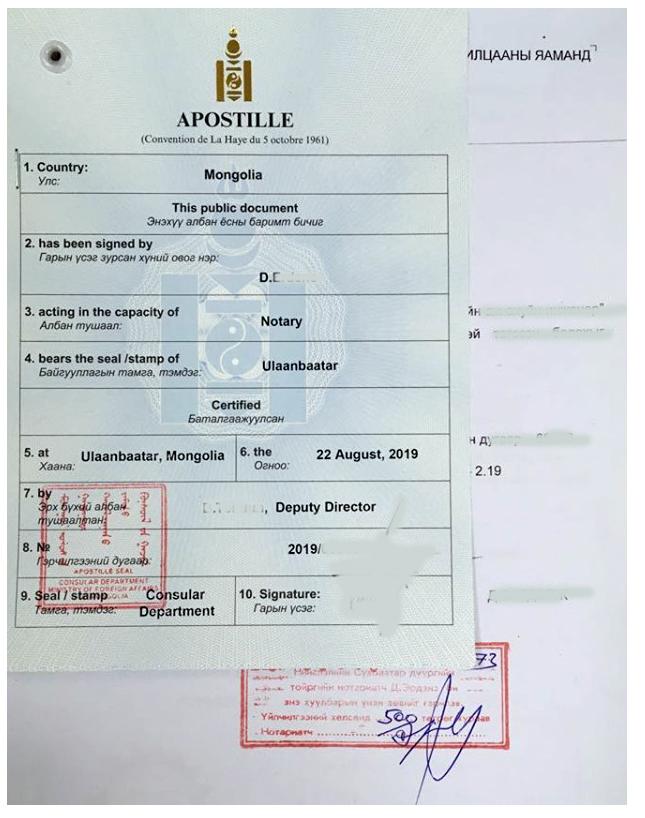 ИЛЦААНЫ ЯАМАНД
APOSTILLE
(Convention de La Haye du 5 octobre 1961)
1. Country:
Улс:
Mongolia
This public document
Энэхүү албан ёсны баримт бичиг
2. has been signed by
Гарын үсэг зурсан хүний овог нэр:
D.E
3. acting in the capacity of
Албан тушаал:
Notary
4. bears the seal /stamp of
Байгууллагын тамга, тэмдэг:
Ulaanbaatar
Certified
Баталгаажуулсан
5. at
Хаана:
Ulaanbaatar, Mongolia
6. the
Огноо:
22 August, 2019
7. by
Эрх бүхий албан
тушаалтан:
, Deputy Director
8. №
Гэрчилгээний дугаар:
2019/
APOSTILLE SEAL
CONSULAR DEPARTMENT
MINISTRY OF FOREIGN AFFAIRS
9. Seal / stamp
Тамга, тэмдэг:
Consular
Department
10. Signature:
Гарын үсэг:
йн
эй
н ду
2.19
73
Сүхбаатар дүүргийн
тойргийн нотариатч Д.Эрдэнэ
энэ хуулбарын үнэн зөвийг гэрчлэв.
Үйлчилгээний хөлсөнд 500 төгрөг хураав
Нотариатч